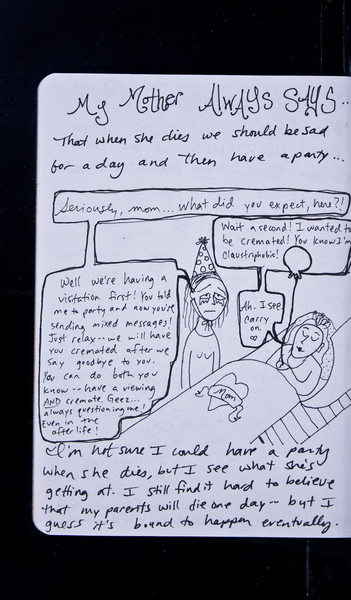 My Mother ALWAYS SAYS...
That when she dies we should be sad
for a day and then have a party...
Seriously, mom... what did you expect, here?!
Wait a second! I wanted to
be cremated! You know I'm
claustrophobic!
Well we're having a
visitation first! You told
me to party and now you're
sending mixed messages!
Just relax-- we will have
you cremated after we
say goodbye to you.
You can do both you
know-- have a viewing
AND cremate. Geez...
always questioning me!
Even in the
afterlife!
Ah. I see.
Carry
on.
Mom
I'm not sure I could have a party
when she dies, but I see what she's
getting at. I still find it hard to believe
that my parents will die one day -- but I
guess it's bound to happen eventually.